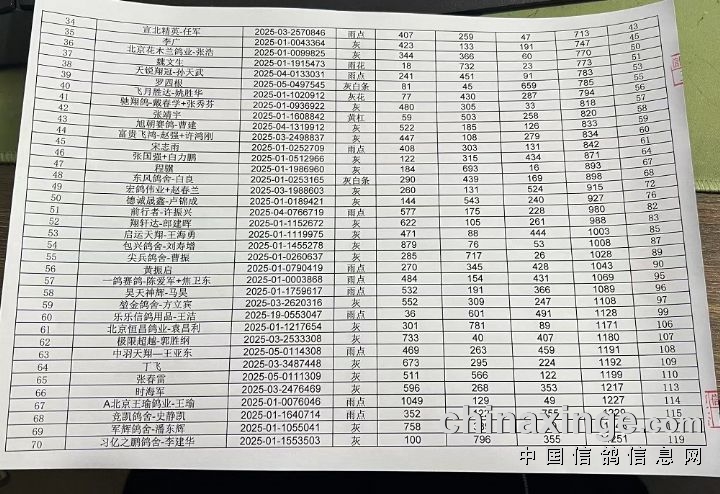 34 宣北精英-任军 2025-03-2570846 雨点 407 259 47 713 43
35 李广 2025-01-0043364 灰 423 133 191 747 45
36 北京花木兰鸽业-张浩 2025-01-0099825 灰 344 366 60 760 50
37 魏文生 2025-01-1915473 雨花 18 732 23 770 51
38 天锐翔冠-孙天武 2025-04-0133031 雨点 241 451 91 773 53
39 罗四根 2025-05-0497545 灰白条 81 45 659 783 55
40 飞月胜达-姚胜华 2025-01-1020912 灰花 77 430 287 785 56
41 驰翔鸽-戴春学+张秀芬 2025-01-0936922 灰 480 305 33 794 57
42 张靖宇 2025-01-1608842 黄杠 59 503 258 818 58
43 旭朝赛鸽-曹建 2025-04-1319912 灰 522 185 126 820 59
44 富贵飞鸿-赵强+许鸿刚 2025-03-2498837 灰 447 108 279 833 60
45 宋志雨 2025-01-0252709 雨点 408 303 131 834 61
46 张国强+白力鹏 2025-01-0512966 灰 122 315 434 842 64
47 程骥 2025-01-1986960 灰 184 693 16 871 67
48 东风鸽舍-白良 2025-01-0253165 灰白条 290 439 169 893 68
49 宏鸽伟业+赵春兰 2025-03-1988603 灰 260 131 524 898 72
50 德诚晟鑫-卢锦成 2025-01-0189421 灰 144 543 240 915 76
51 前行者-许振兴 2025-04-0766719 雨点 577 175 228 927 82
52 翔轩达-郎建晖 2025-01-1152672 灰 622 105 261 980 83
53 启运天翔-王海勇 2025-01-1119975 灰 471 88 444 988 85
54 包兴鸽舍-刘寿增 2025-01-1455278 灰 879 76 53 1003 87
55 尖兵鸽舍-曹振 2025-01-0260637 灰 285 717 26 1008 89
56 黄振启 2025-01-0790419 雨点 270 345 428 1028 90
57 一鸽赛鸽-陈爱军+焦卫东 2025-01-0003868 雨点 484 154 431 1043 95
58 昊天神辉-马昊 2025-01-1759617 雨点 532 191 366 1069 96
59 堃金鸽舍-方立宾 2025-03-2620316 灰 552 309 247 1089 97
60 乐乐信鸽用品-王洁 2025-19-0553047 雨点 36 601 491 1108 99
61 北京恒昌鸽业-袁昌利 2025-01-1217654 灰 301 781 89 1128 106
62 极限超越-郭胜纲 2025-03-2533308 灰 733 40 407 1171 107
63 中羽天翔—王亚东 2025-05-0114308 雨点 469 263 459 1180 108
64 丁飞 2025-03-3487448 灰 673 295 224 1191 109
65 张春雷 2025-05-0111309 灰 511 566 122 1192
66 时海军 2025-03-2476469 灰 596 268 353 1199 113
67 A北京王瑜鸽业-王瑜 2025-01-0076046 雨点 1049 129 49 1217 114
68 竞凯鸽舍-史静凯 2025-01-1640714 雨点 352 1227 115
69 军辉鸽舍-潘东辉 2025-01-1055041 灰 758
70 习亿之鹏鸽舍-李建华 2025-01-1553503 灰 100 796 355 1251 119
chinaxinge.com
中国信鸽信息网